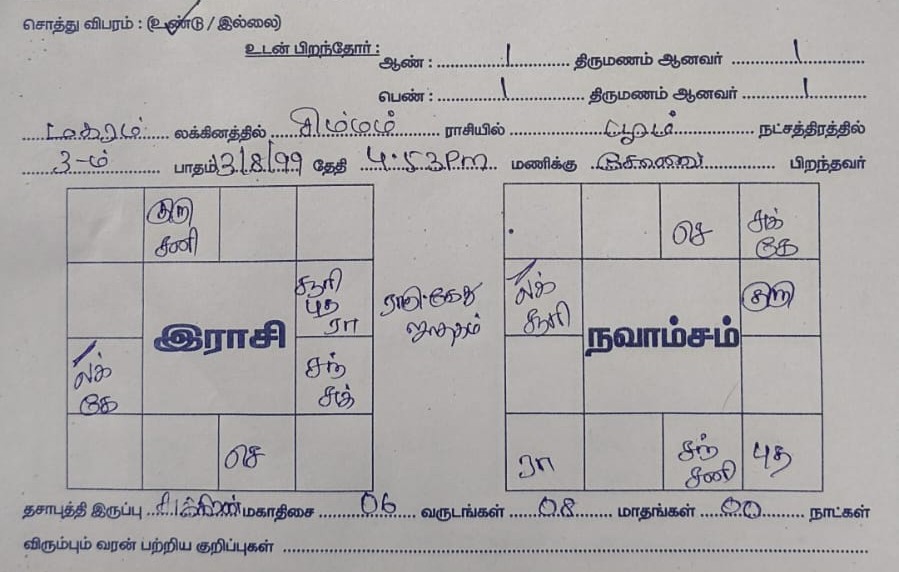 சொத்து விபரம் : (உண்டு / இல்லை)
உடன் பிறந்தோர் :
ஆண் : 1 திருமணம் ஆனவர் 1
பெண் : 1 திருமணம் ஆனவர் 1
மகரம் லக்கினத்தில் சிம்மம் ராசியில் பூரம் நட்சத்திரத்தில்
3-ம் பாதம் 13/8/99 தேதி 4:53 PM மணிக்கு பிறந்தவர்
குரு
சனி
சூரி
புத
ரா
லக்
கே
இராசி
சந்
சுக்
செ
ராகு-கேது
ஜாதகம்
செ
சுக்
கே
லக்
சூரி
குரு
நவாம்சம்
ரா
சந்
சனி
புத
தசாபுத்தி இருப்பு சுக்கிரன் மகாதிசை 06 வருடங்கள் 08 மாதங்கள் 00 நாட்கள்
விரும்பும் வரன் பற்றிய குறிப்புகள்